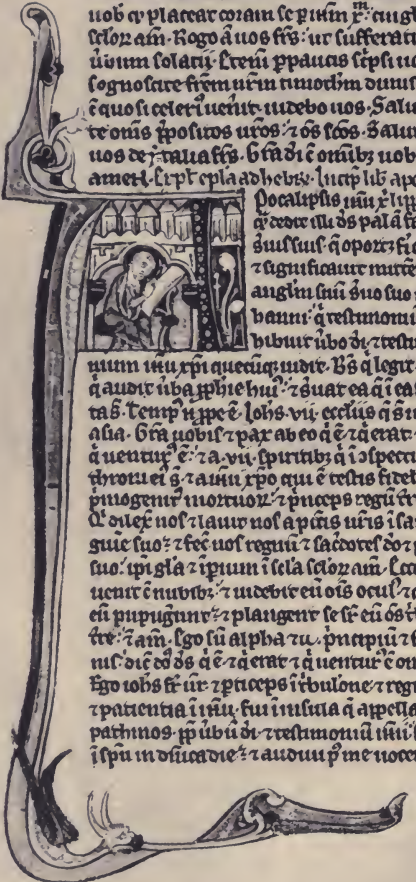 uob q placeat coram se p ihm xm: cui gl
sclor am. Rogo ā uos frs: ut sufferati
ūbum solacii. Eteni ppaucis scpsi uo
ognoscite frem urm timothm dimis
ē quo si celeri uenit uidebo uos. Salu
te omīs ppositos uros: ⁊ os scos. Salut
uos de ytalia frs. Gra di ē omibz uob
ameN. Expt epla ad hebrs. Incip lib apo
Pocalipsis ihu x
q̄ dedit illi ds palā f
suis suis q̄ oportz fi
⁊ significauit mitt
anglm suū suo suo
hanni: q̄ testimoniu
hibuit ūbo di ⁊ testi
nium ihu xpi quecūq uidit. Bs q̄ legit
q̄ audit ūba pphie hui: ⁊ suat ea q̄ i ea
ta s. Temp n ppe ē. Iohs vii ecclīis q̄ s i
asia. Gra uobis ⁊ pax ab eo q̄ ē ⁊ q̄ erat
q̄ uentur ē: ⁊ a vii spiritibz q̄ i ospectu
throni ei s: ⁊ a ihu xpo qui ē testis fidel
pmogenit mortuor: ⁊ pnceps regū tr
Q dilex nos ⁊ lauit nos a pctis uris i sa
guie suo: ⁊ fec nos regnū ⁊ sacdotes do ⁊ p
suo: ipi gla ⁊ ipium i scla sclor am. Ecc
uenit c nubibz: ⁊ uidebit eū ois ocul ⁊ q
eū pupugunt: ⁊ plangent se sr eū os t
tre: ⁊ am. Ego sū alpha ⁊ ω. pncipiū ⁊ f
nis: dic dn ds q̄ ē ⁊ q̄ erat ⁊ q̄ uentur ē om
Ego iohs fr ur ⁊ pticeps i tbulone ⁊ regn
⁊ patientia i ihu. fui i insula q̄ appella
pathmos. pp ūbū di ⁊ testimoniū ihu
i spu in dnica die: ⁊ audiui p me uoce